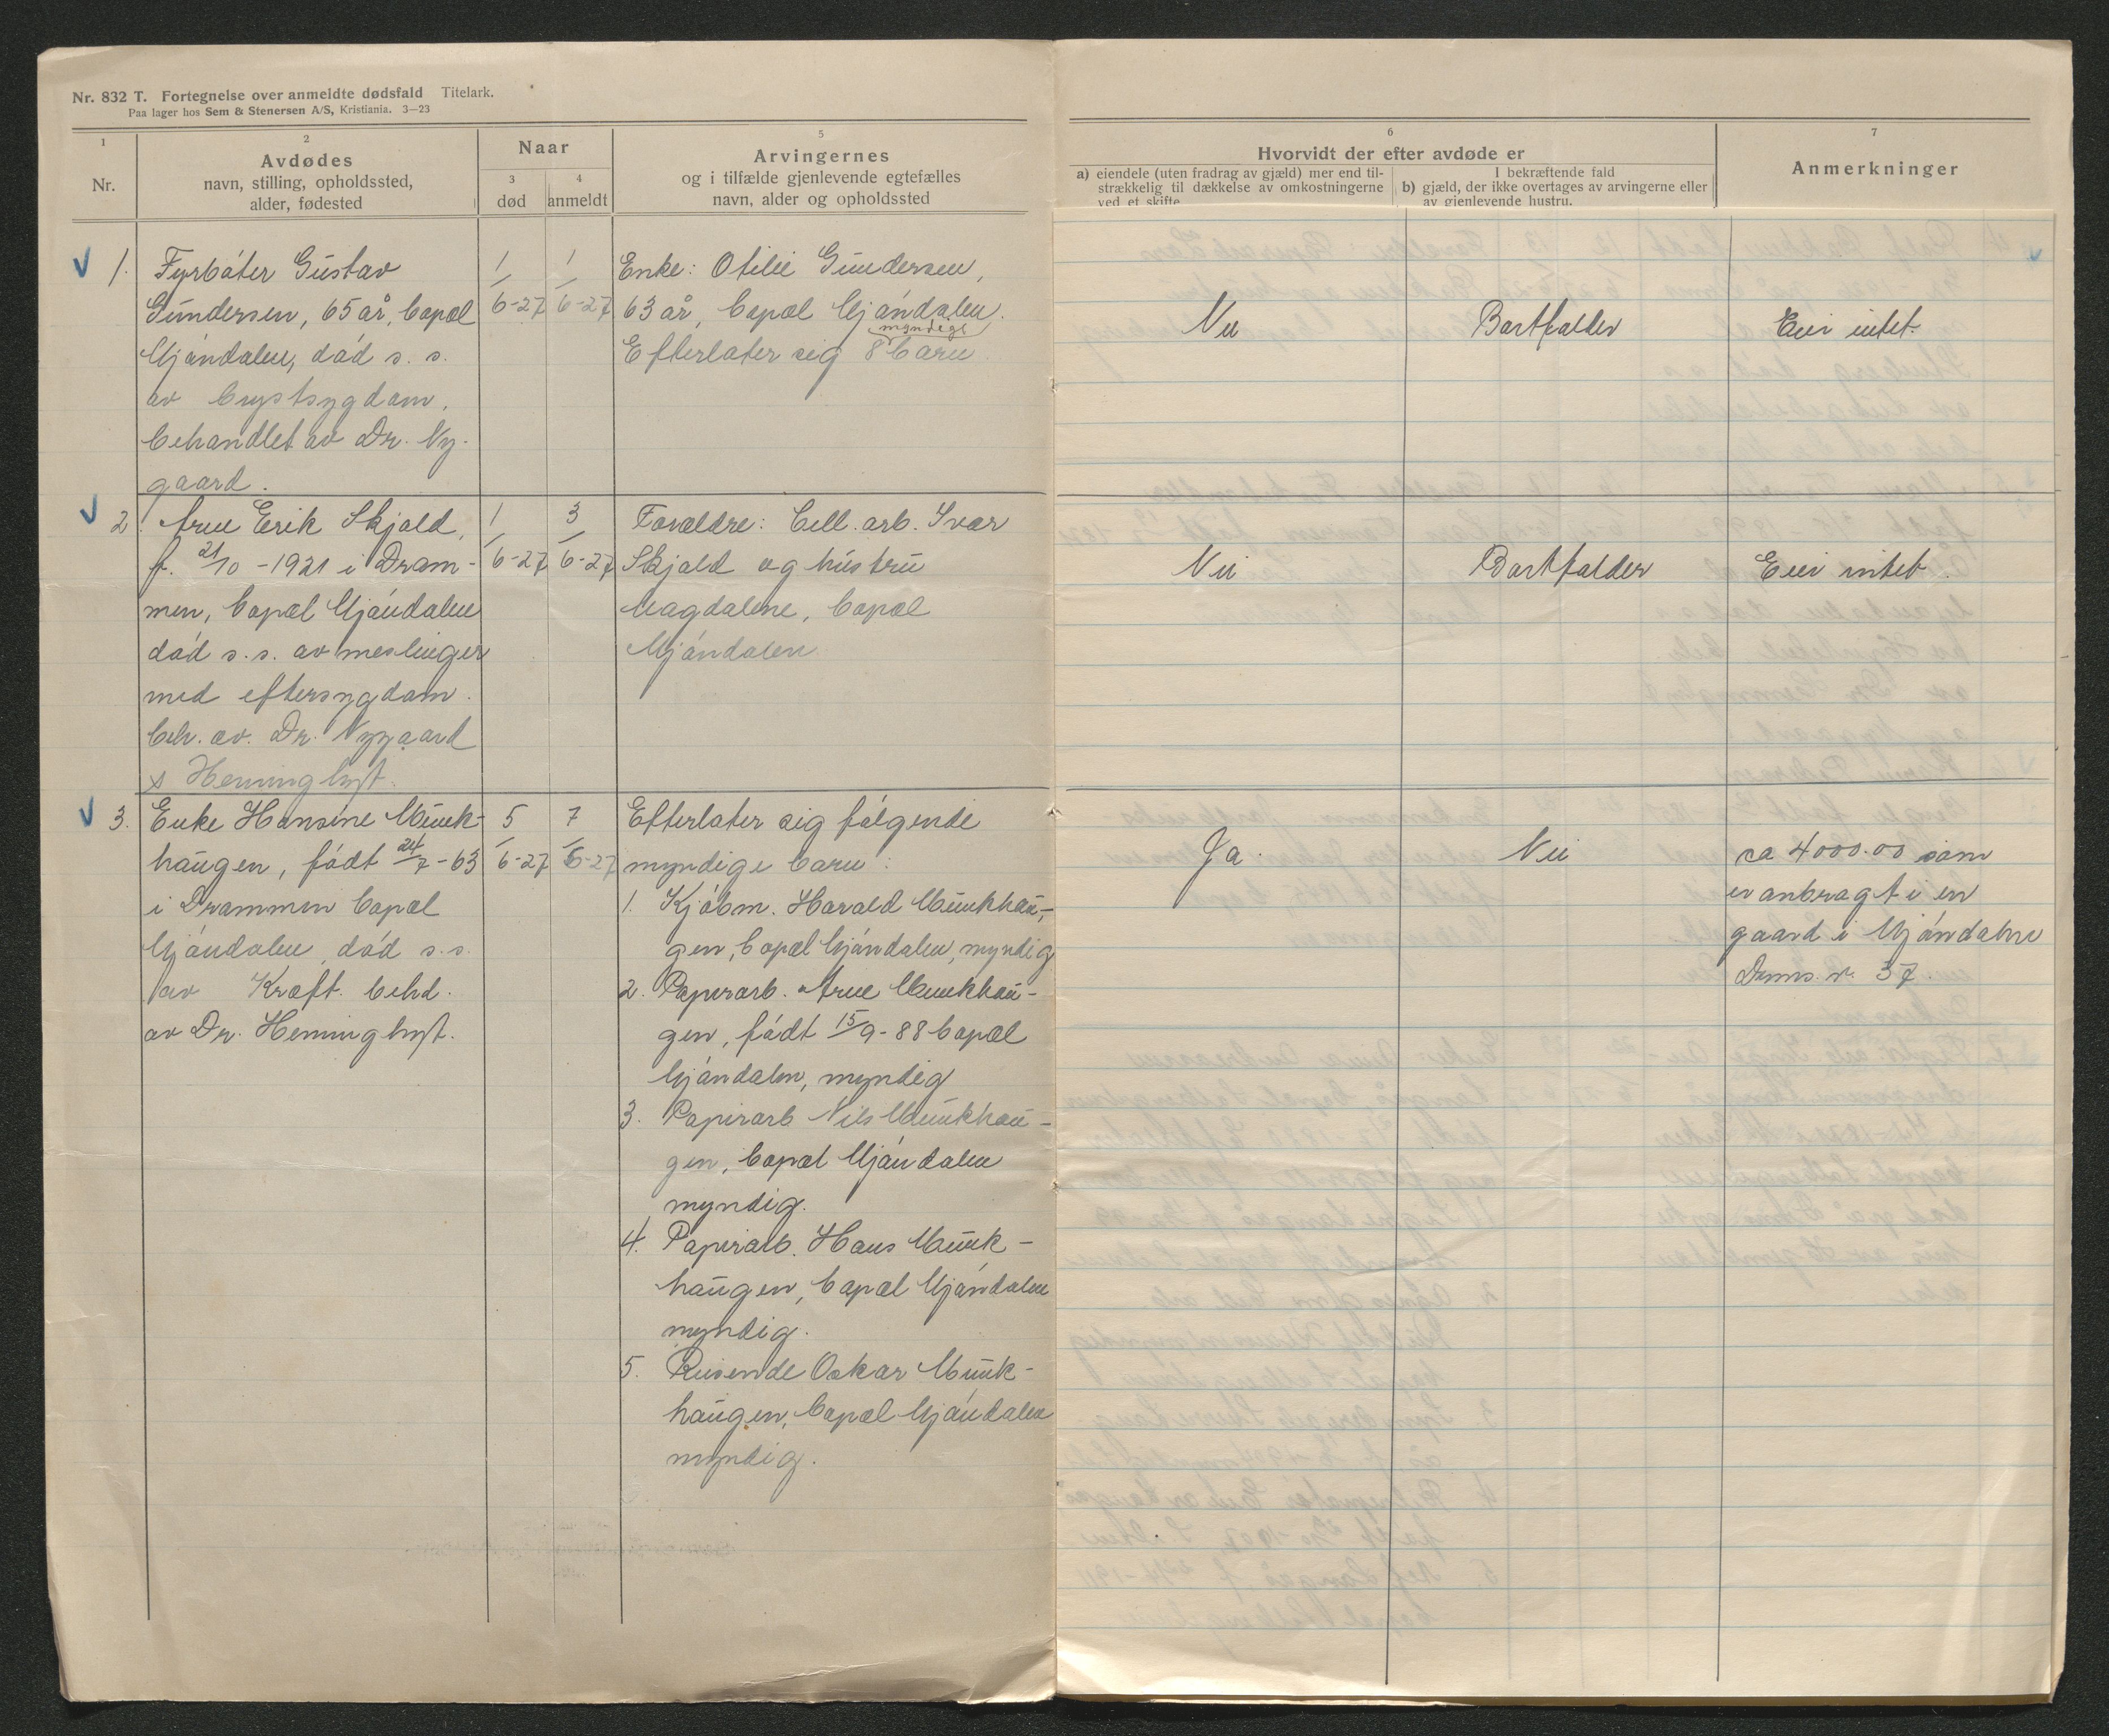 Nr. 832 T. Fortegnelse over anmeldte dødsfald Titelark.
Paa lager hos Sem & Stenersen A/S, Kristiania. 3—23
1
Nr.
2
Avdødes
navn, stilling, opholdssted,
alder, fødested
Naar
3
død
4
anmeldt
5
Arvingernes
og i tilfælde gjenlevende egtefælles
navn, alder og opholdssted
6
Hvorvidt der efter avdøde er
a) eiendele (uten fradrag av gjæld) mer end til-
strækkelig til dækkelse av omkostningerne
ved et skifte.
I bekræftende fald
b) gjæld, der ikke overtages av arvingerne eller
av gjenlevende hustru.
7
Anmerkninger
1. Fyrbøter Gustav
Gundersen, 65 år, bopæl
Mjøndalen, død s. s.
av brystsygdom,
behandlet av Dr. Ny-
gaard.
1/6-27
1/6-27
Enke: Otilie Gundersen,
63 år, bopæl Mjøndalen.
myndige
Efterlater sig 8 barn.
Nei
Bortfalder
Eier intet.
2. Arne Erik Skjold,
f. 21/10 - 1921 i Dram-
men, bopæl Mjøndalen
død s. s. av meslinger
med eftersygdom.
beh. av. Dr. Nygaard
& Heminghyt.
1/6-27
3/6-27
Forældre: Cell. arb. Ivar
Skjold og hustru
Magdalene, bopæl
Mjøndalen
Nei
Bortfalder
Eier intet.
3. Enke Hansine Munk-
haugen, født 24/7 - 63
i Drammen bopæl
Mjøndalen, død s. s.
av Kræft. behd.
av Dr. Heminghyt.
5/6-27
7/6-27
Efterlater sig følgende
myndige barn:
1. Kjøbm. Harald Munkhau-
gen, bopæl Mjøndalen, myndig
2. Papirarb. Arne Munkhau-
gen, født 15/9 - 88 bopæl
Mjøndalen, myndig
3. Papirarb Nils Munkhau-
gen, bopæl Mjøndalen
myndig.
4. Papirarb. Hans Munk-
haugen, bopæl Mjøndalen
myndig.
5. Reisende Oskar Munk-
haugen, bopæl Mjøndalen
myndig.
Ja.
Nei
ca 4000.00 som
er anbragt i en
gaard i Mjøndalen
37.